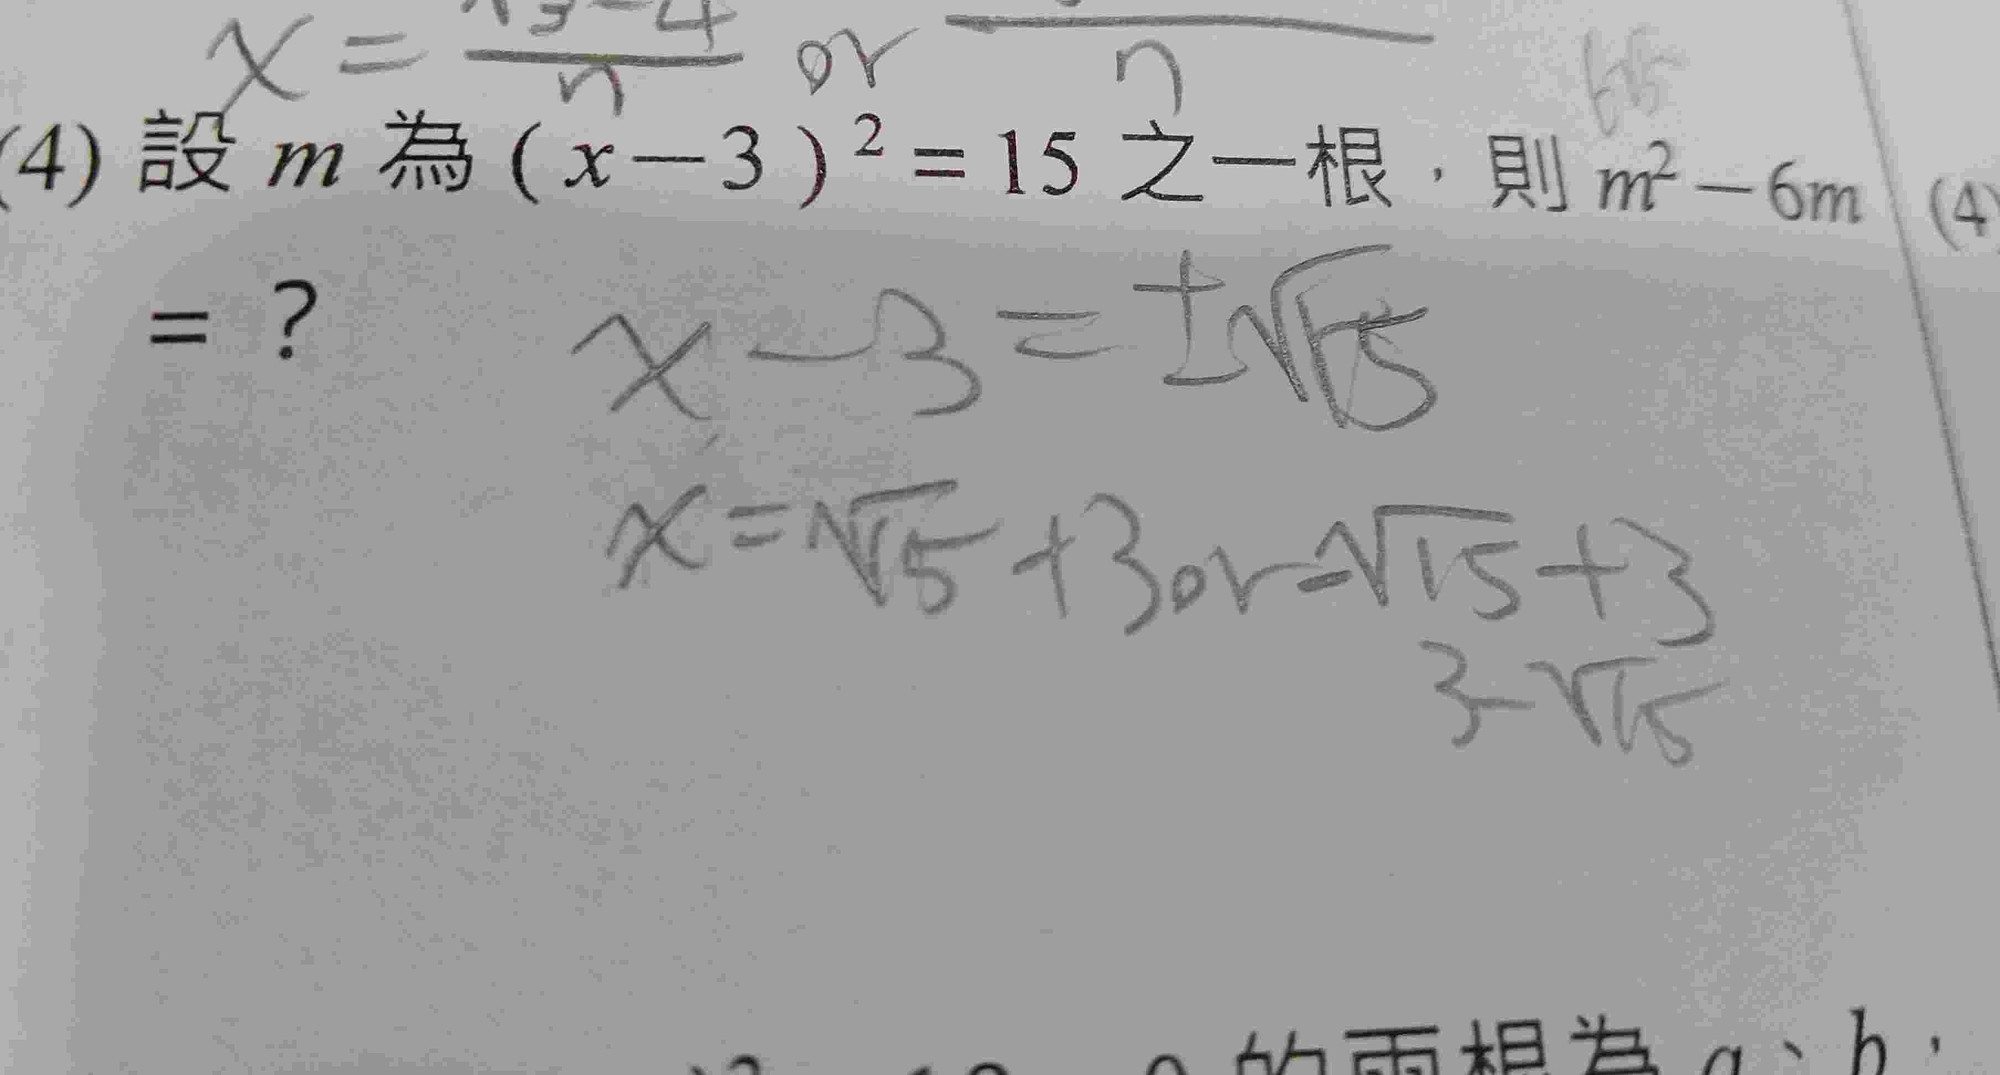 x = √3-4/n or /n
(4) 設 m 為 ( x－3 )² = 15 之一根，則 m²－6m (4)
= ？
x - 3 = ±√15
x = √15 + 3 or -√15 + 3
3-√15
的兩根為 a、b，